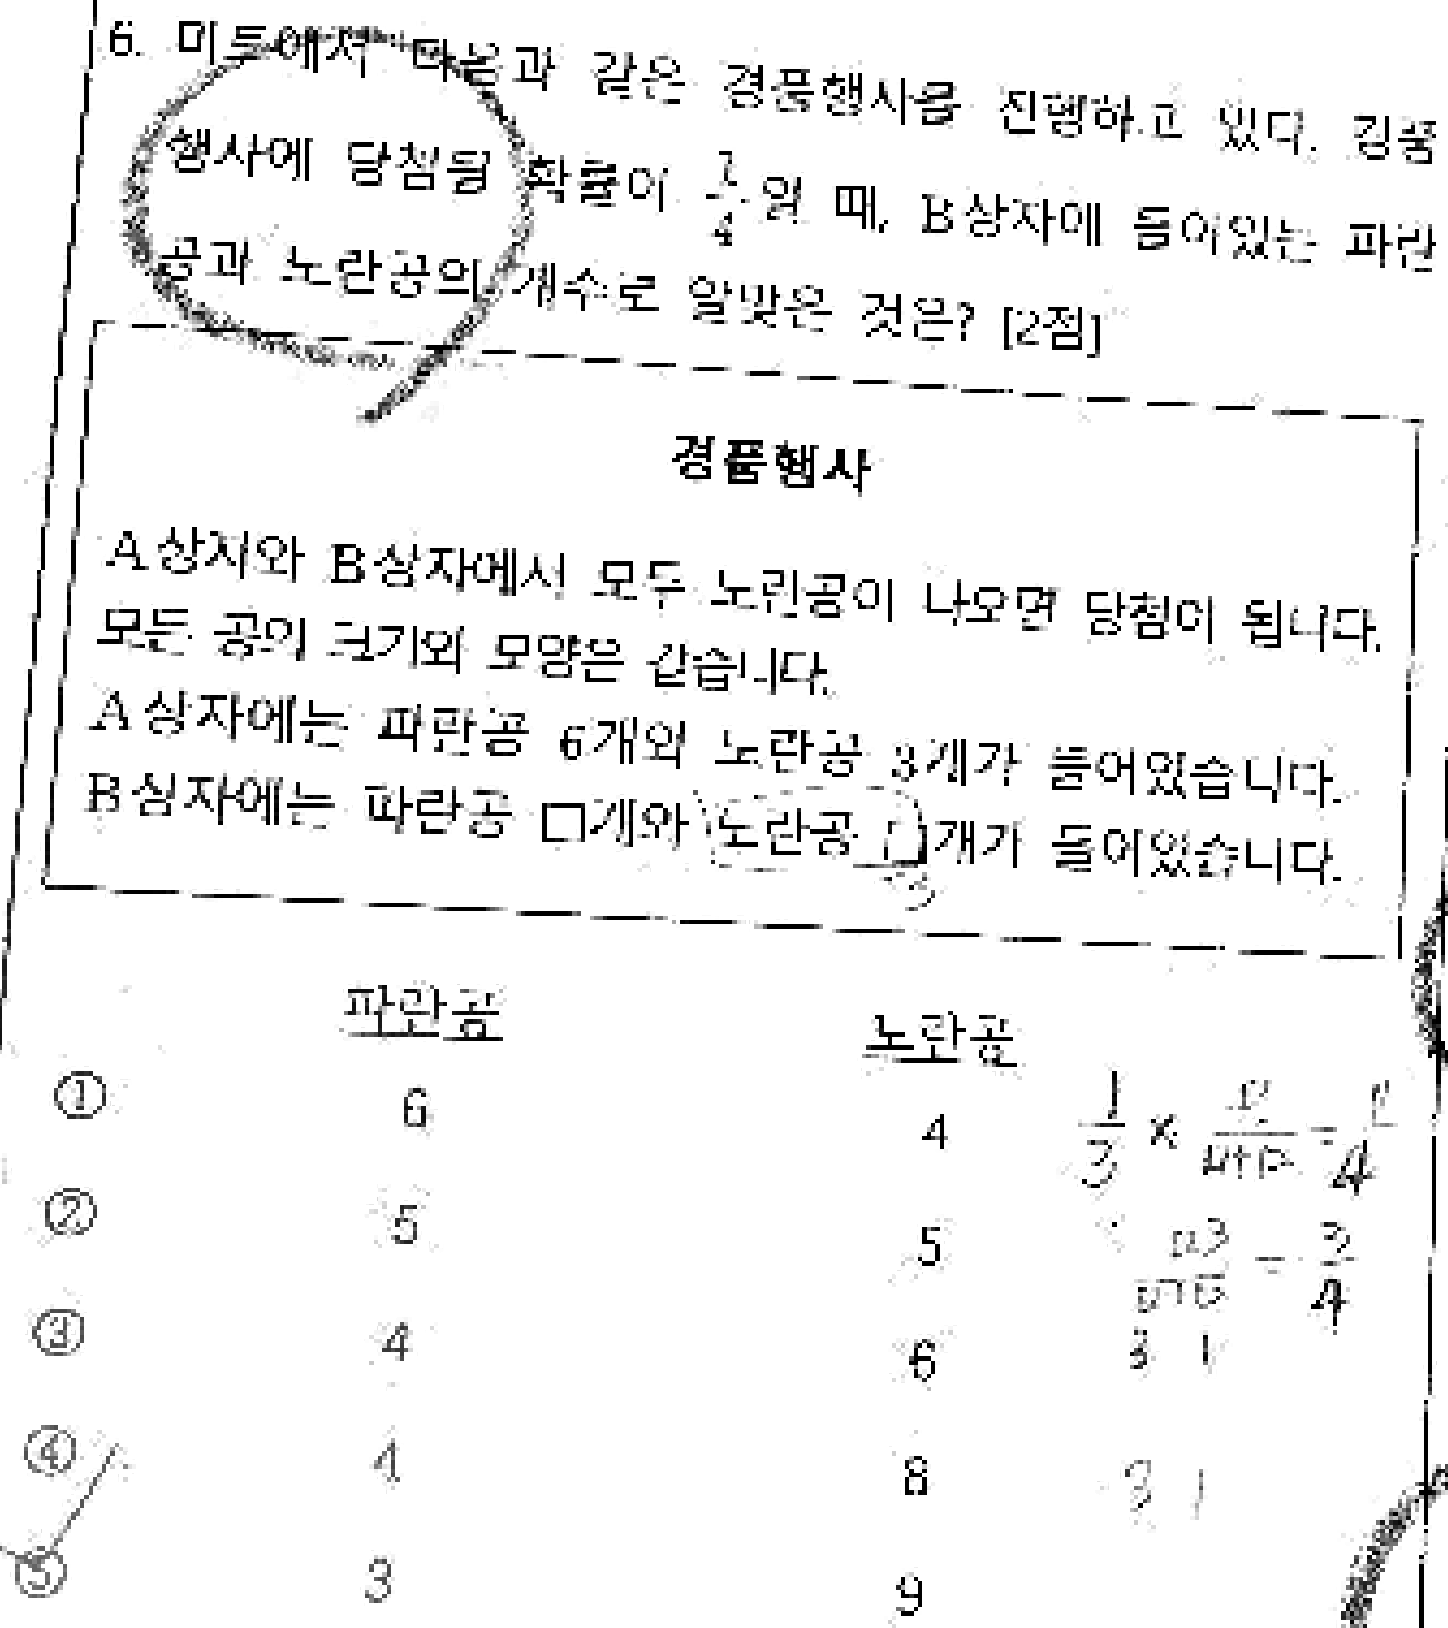 6. 마트에서 다음과 같은 경품행사를 진행하고 있다. 경품
행사에 당첨될 확률이 1/4일 때, B상자에 들어있는 파란
공과 노란공의 개수로 알맞은 것은? [2점]
경품행사
A상자와 B상자에서 모두 노란공이 나오면 당첨이 됩니다.
모든 공의 크기와 모양은 같습니다.
A상자에는 파란공 6개와 노란공 3개가 들어있습니다.
B상자에는 파란공 □개와 노란공 □개가 들어있습니다.
파란공 노란공
① 6 4
② 5 5
③ 4 6
④ 4 8
⑤ 3 9
1/3 ×
3/4
3 1
3 1